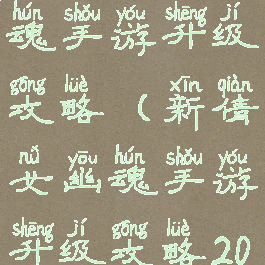 hún shǒu yóu shēng jí
魂手游升级
gōng lüè xīn qiàn
攻略(新倩
nǚ yōu hún shǒu yóu
女幽魂手游
shēng jí gōng lüè
升级攻略20